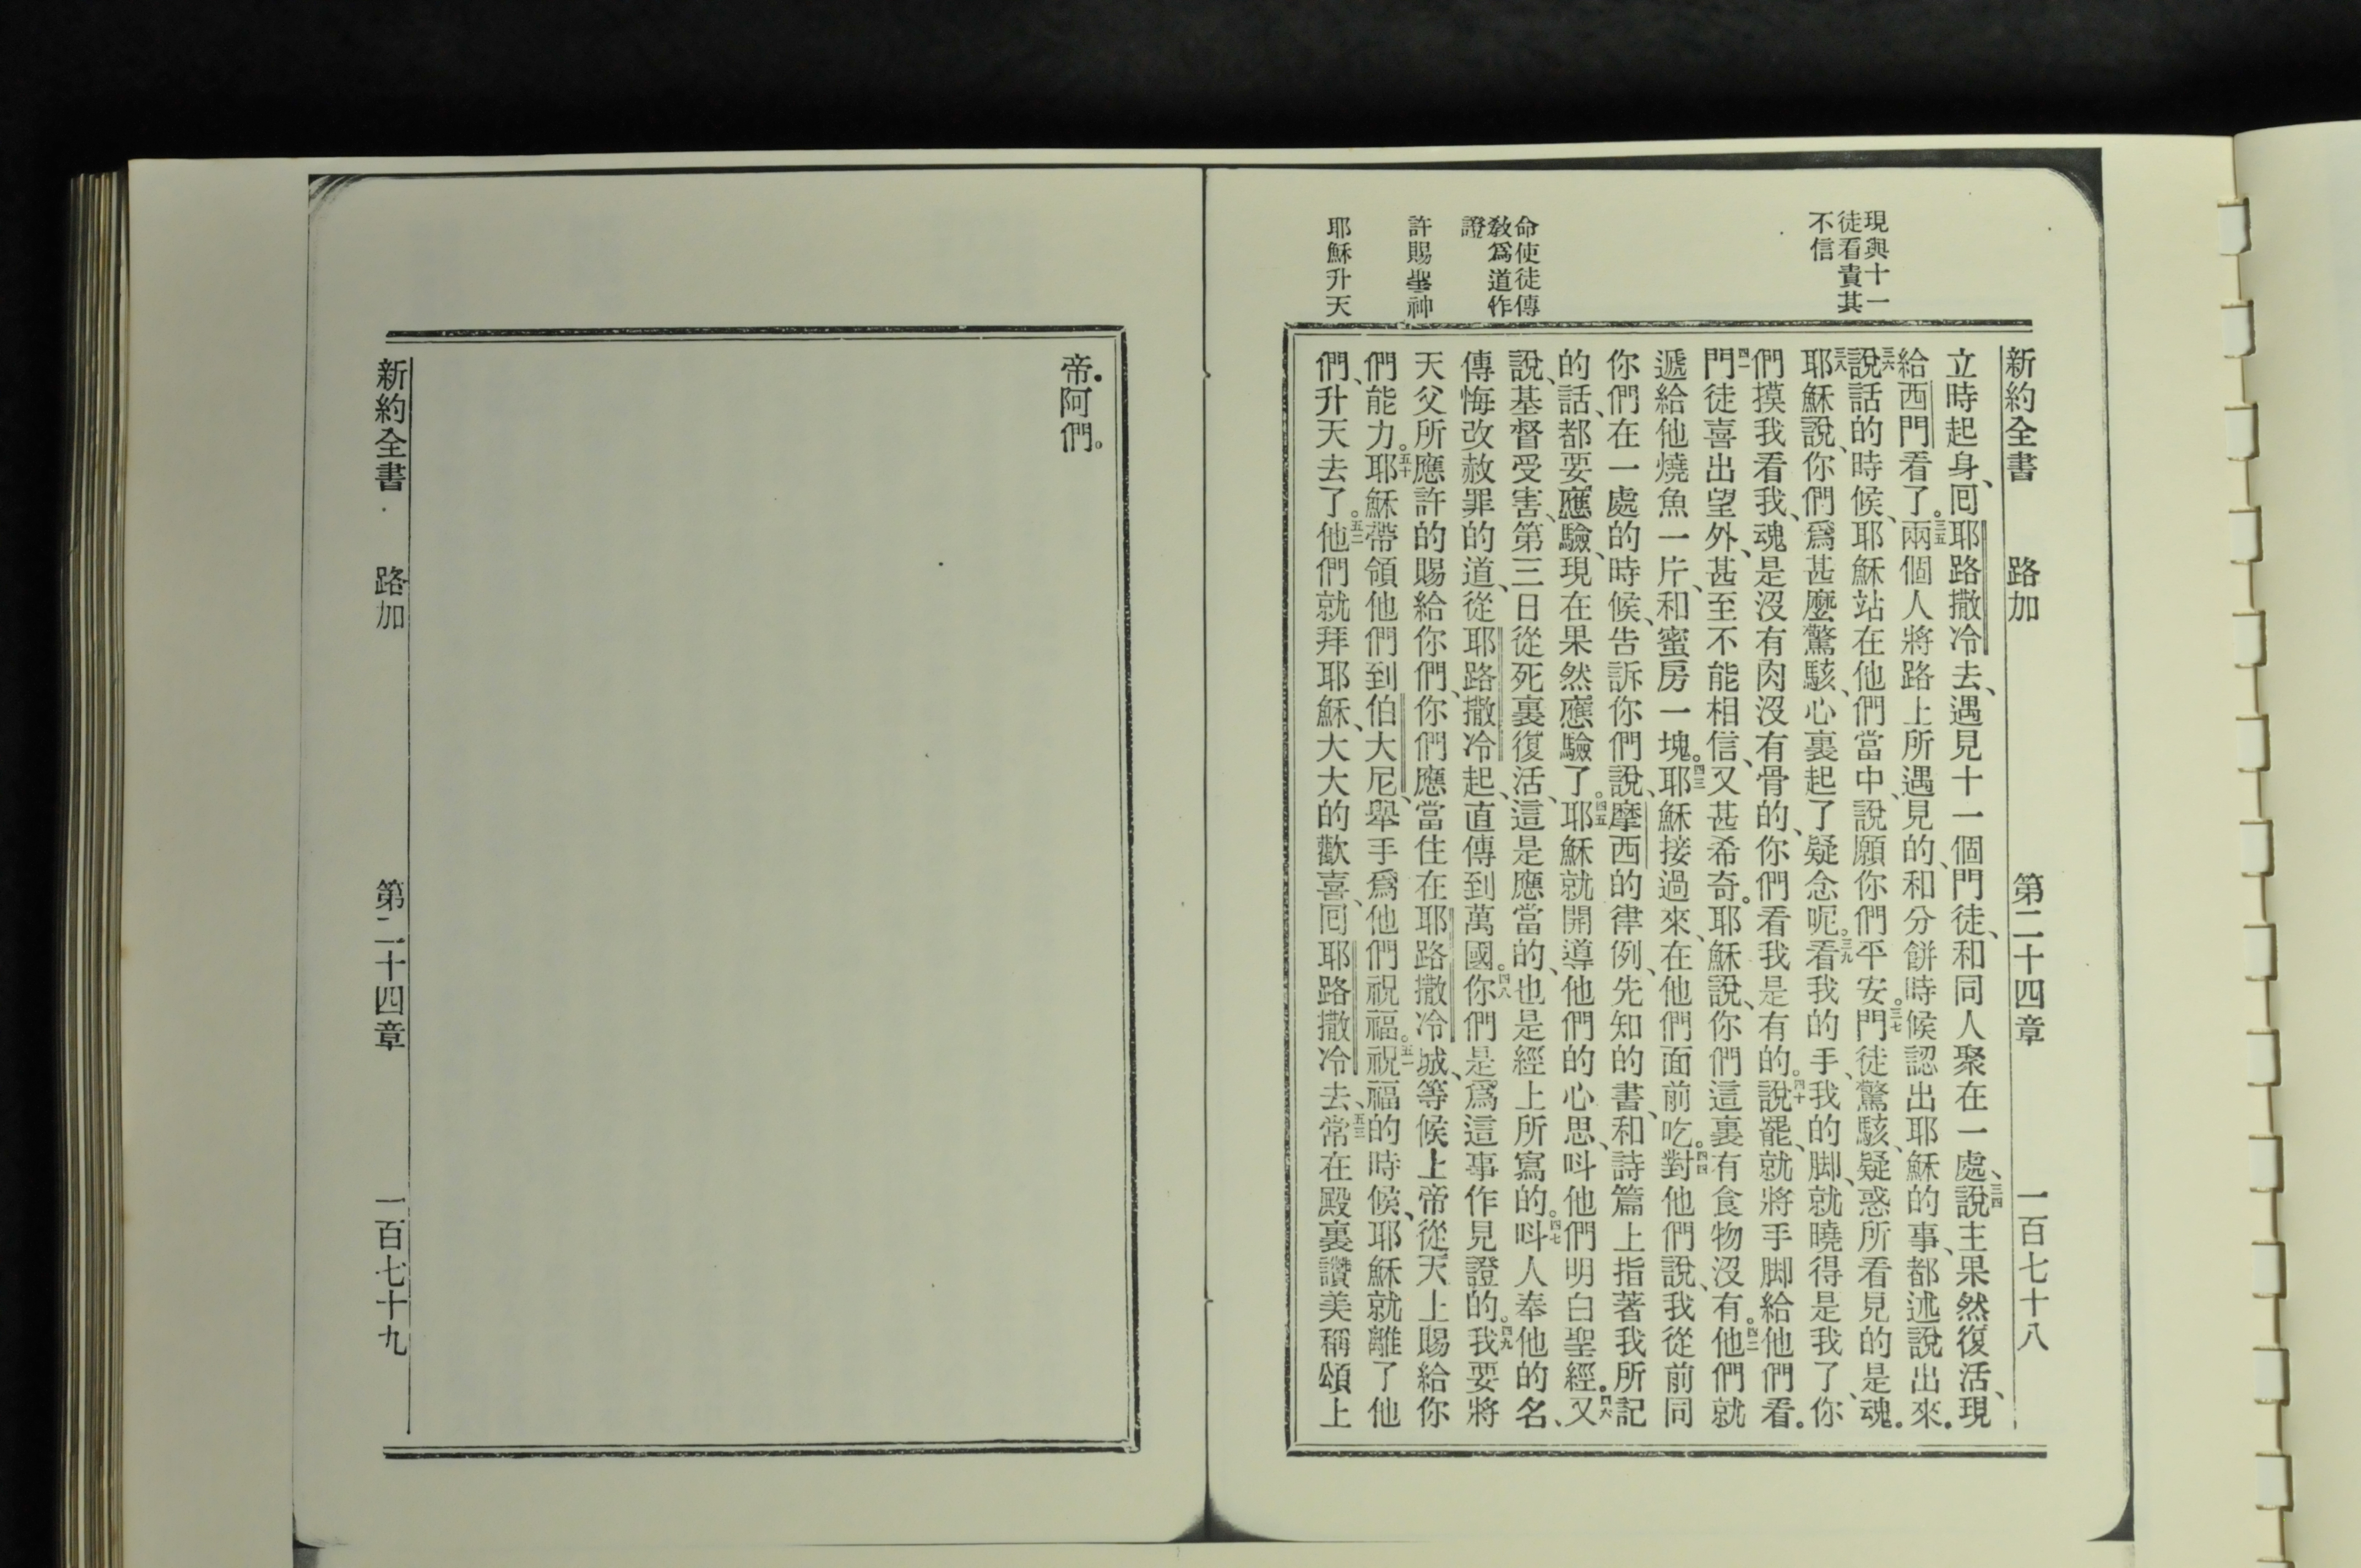 新約全書 路加 第二十四章 一百七十八
現與十一
徒看責其
不信
命使徒傳
教爲道作
證
許賜聖神
耶穌升天
立時起身、囘耶路撒冷去、遇見十一個門徒、和同人聚在一處、三四說主果然復活、現
給西門看了。三五兩個人將路上所遇見的、和分餅時候認出耶穌的事、都述說出來。
三六說話的時候、耶穌站在他們當中、說願你們平安。三七門徒驚駭、疑惑所看見的是魂。
三八耶穌說、你們爲甚麼驚駭、心裏起了疑念呢。三九看我的手、我的脚、就曉得是我了、你
們摸我看我、魂是沒有肉沒有骨的、你們看我是有的。四十說罷、就將手脚給他們看。
四一門徒喜出望外、甚至不能相信、又甚希奇。耶穌說、你們這裏有食物沒有。四二他們就
遞給他燒魚一片、和蜜房一塊。四三耶穌接過來、在他們面前吃。四四對他們說、我從前同
你們在一處的時候、告訴你們說、摩西的律例、先知的書、和詩篇上指著我所記
的話、都要應驗、現在果然應驗了。四五耶穌就開導他們的心思、呌他們明白聖經。四六又
說、基督受害、第三日從死裏復活、這是應當的、也是經上所寫的。四七呌人奉他的名、
傳悔改赦罪的道、從耶路撒冷起、直傳到萬國。四八你們是爲這事作見證的。四九我要將
天父所應許的賜給你們、你們應當住在耶路撒冷城、等候上帝從天上賜給你
們能力。五十耶穌帶領他們到伯大尼、舉手爲他們祝福。五一祝福的時候、耶穌就離了他
們、升天去了。五二他們就拜耶穌、大大的歡喜、囘耶路撒冷去、五三常在殿裏讚美稱頌上
帝。阿們。
新約全書 路加 第二十四章 一百七十九